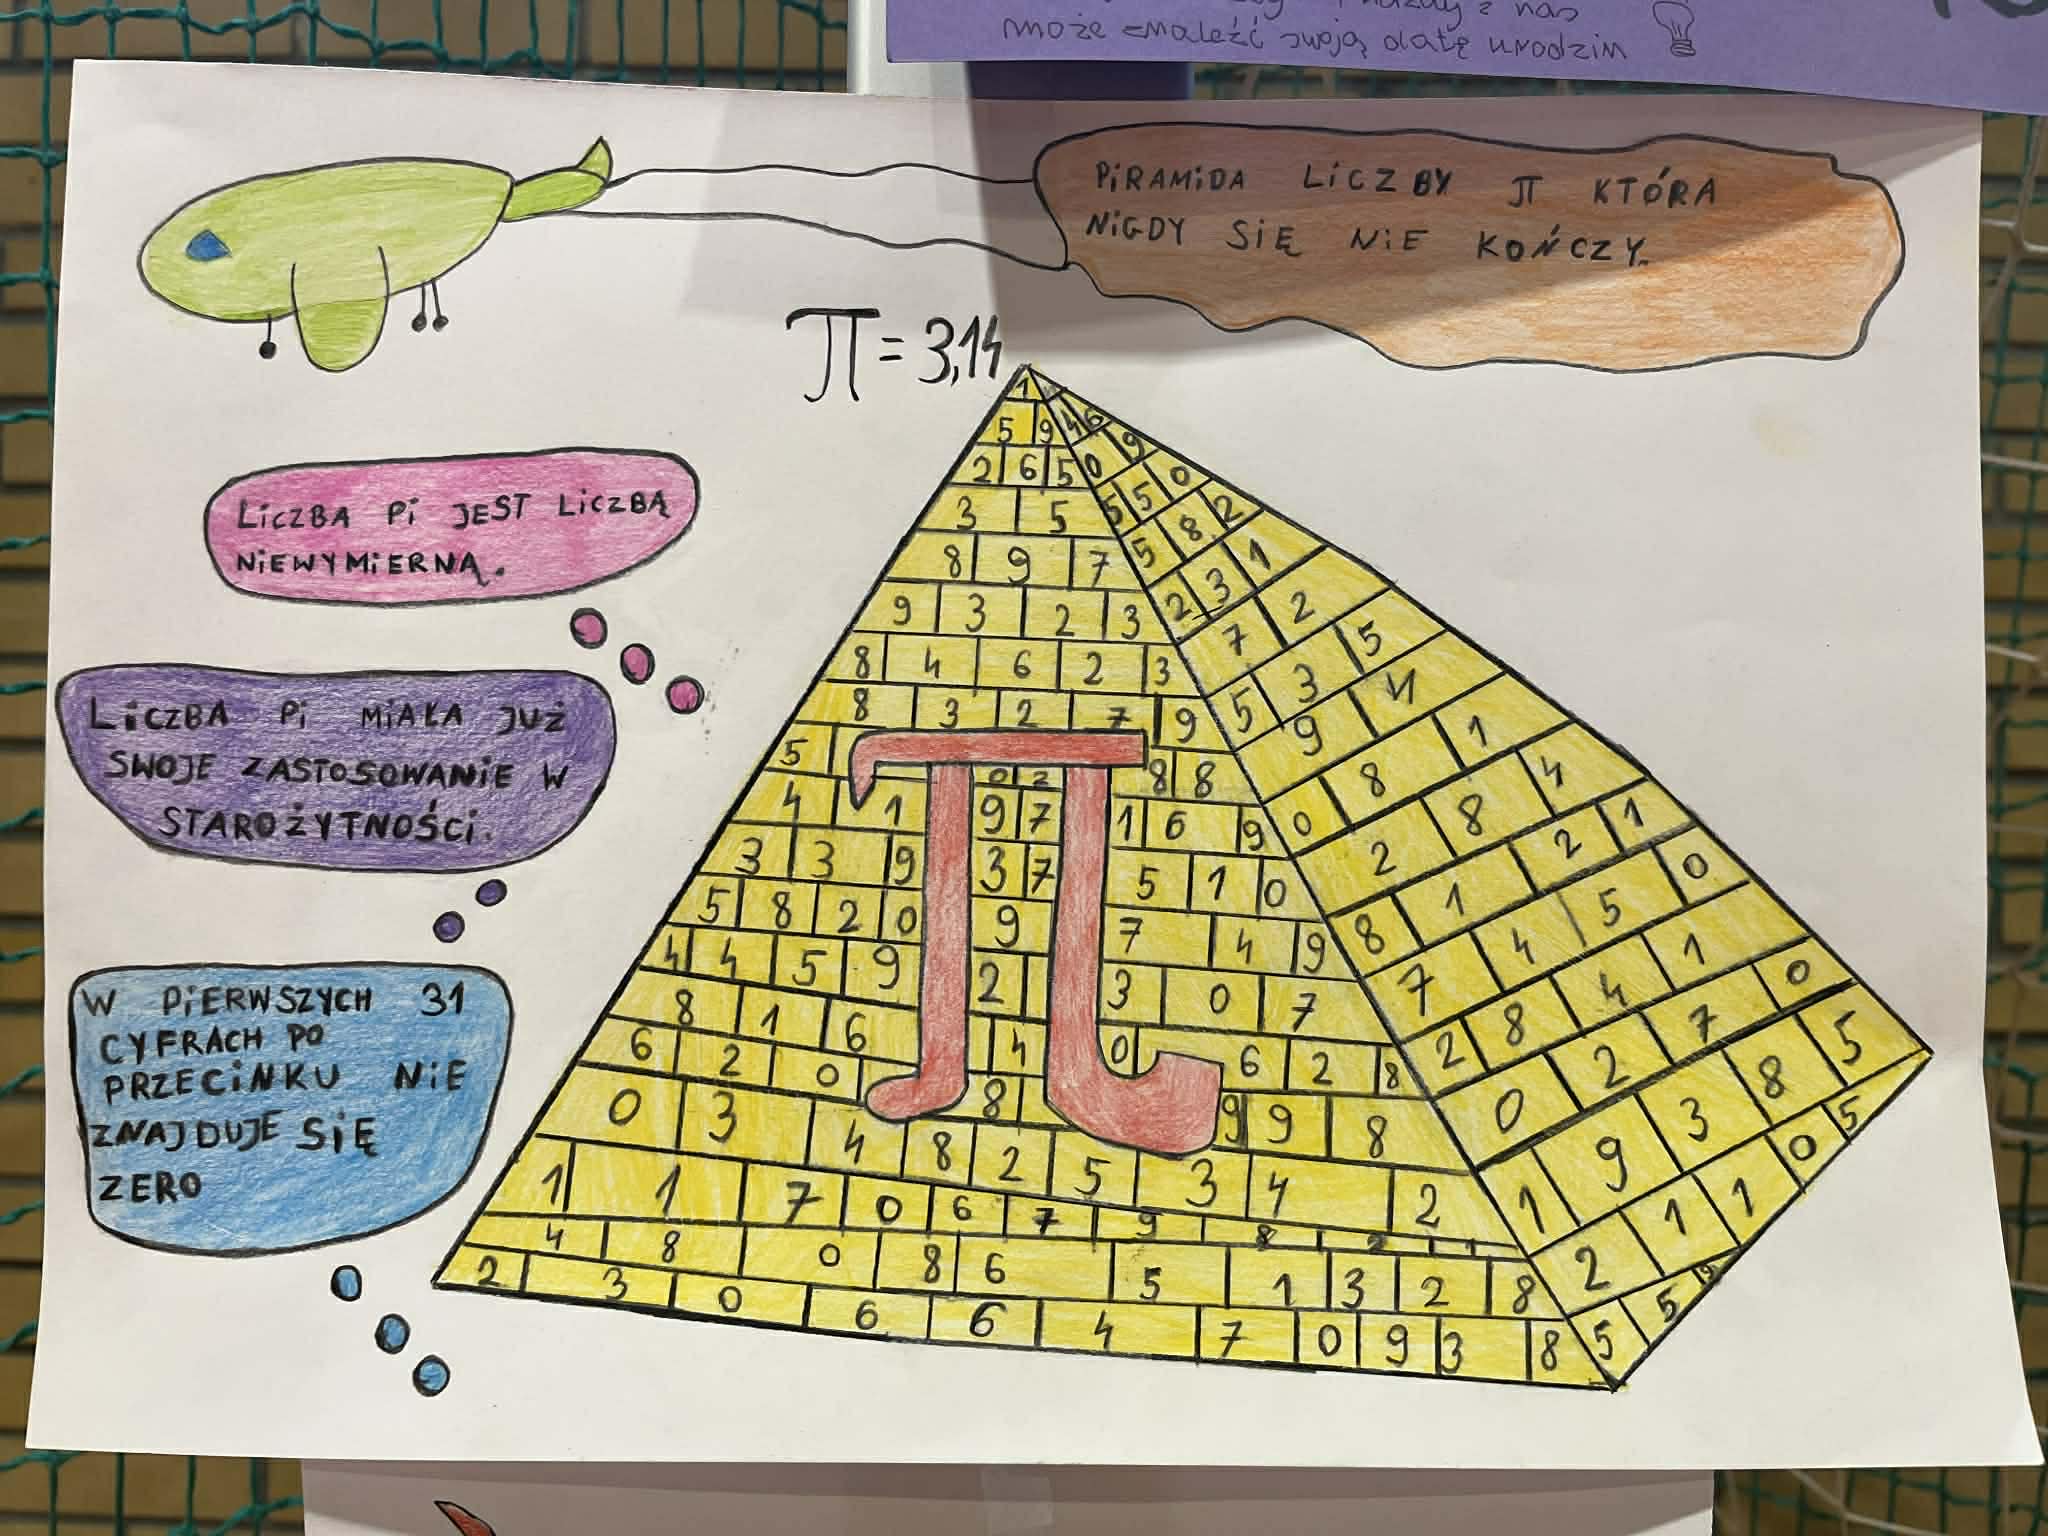 może znaleźć swoją datę urodzin
PIRAMIDA LICZBY π KTÓRA
NIGDY SIĘ NIE KOŃCZY.
π = 3,14
LICZBA PI JEST LICZBĄ
NIEWYMIERNĄ.
LICZBA PI MIAŁA JUŻ
SWOJE ZASTOSOWANIE W
STAROŻYTNOŚCI.
W PIERWSZYCH 31
CYFRACH PO
PRZECINKU NIE
ZNAJDUJE SIĘ
ZERO
1
5 9 4 6
2 6 5 0 9
3 5 5 5 0
8 9 7 5 8 2
9 3 2 3 2 3 1
8 4 6 2 3 7 2
8 3 2 7 9 5 3 5
5 0 2 8 8 9 4
4 1 9 7 1 6 9 0 8 1
3 3 9 3 7 5 1 0 2 8 4
5 8 2 0 9 7 4 9 8 1 2 1
4 4 5 9 2 3 0 7 7 4 5 0
8 1 6 4 0 6 2 8 2 8 4 1
6 2 0 8 9 9 8 0 2 7 0
0 3 4 8 2 5 3 4 2 1 9 3 8 5
1 1 7 0 6 7 9 8 2 1
4 8 0 8 6 5 1 3 2 8 2 1 1 0 5
2 3 0 6 6 4 7 0 9 3 8 5 5 9
π